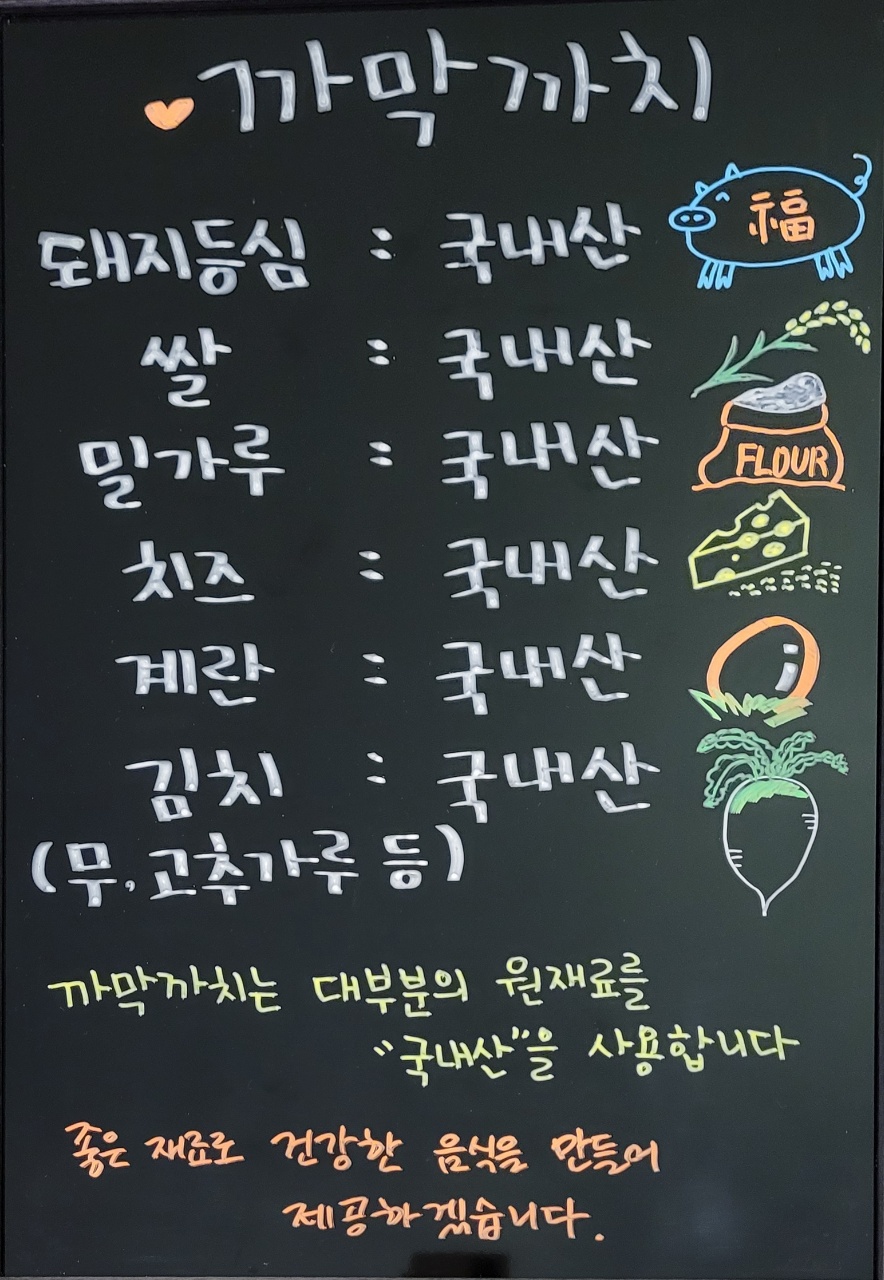 까막까치
돼지등심 : 국내산
福
쌀 : 국내산
밀가루 : 국내산
FLOUR
치즈 : 국내산
계란 : 국내산
김치 : 국내산
(무, 고추가루 등)
까막까치는 대부분의 원재료를
"국내산"을 사용합니다
좋은 재료로 건강한 음식을 만들어
제공하겠습니다.